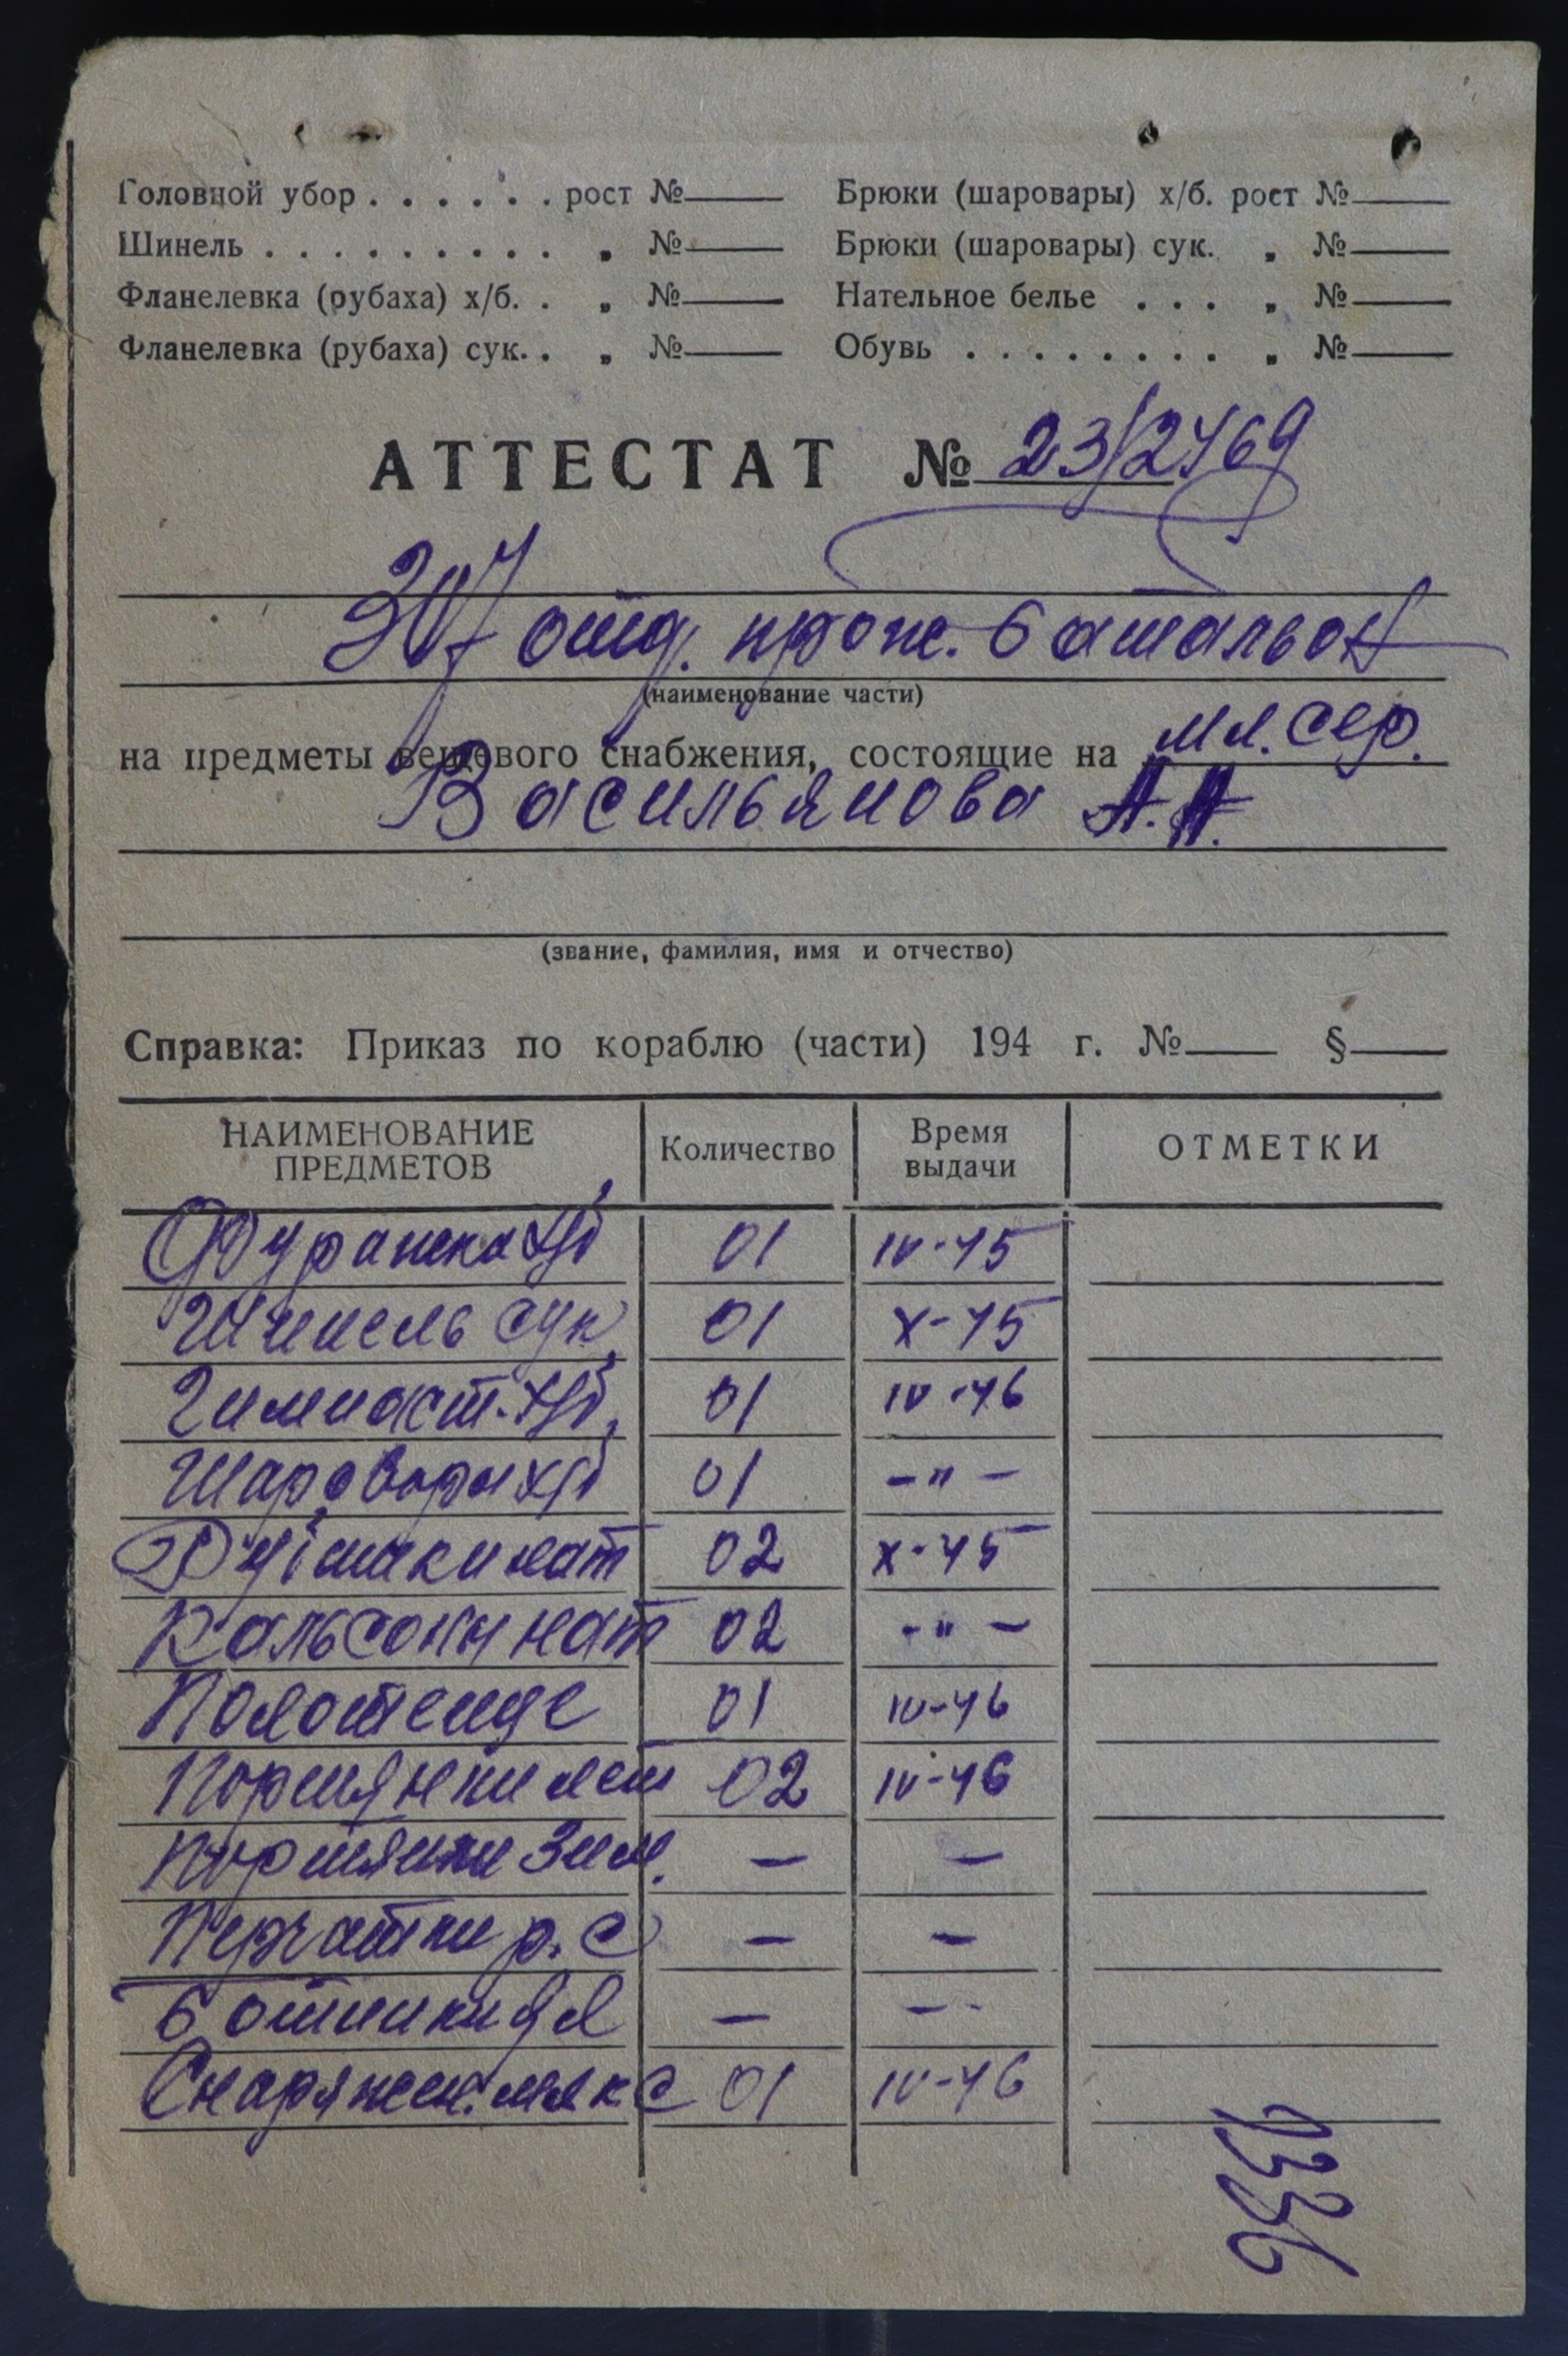 Головной убор . . . . . . рост №____ Брюки (шаровары) х/б. рост №____
Шинель . . . . . . . . . . „ №____ Брюки (шаровары) сук. „ №____
Фланелевка (рубаха) х/б. . „ №____ Нательное белье . . . „ №____
Фланелевка (рубаха) сук. . „ №____ Обувь . . . . . . . . „ №____
АТТЕСТАТ № 23/2469
307 отд. прож. батальон
(наименование части)
на предметы вещевого снабжения, состоящие на мл. сер.
Васильянова А. А.
(звание, фамилия, имя и отчество)
Справка: Приказ по кораблю (части) 194 г. №____ §____
НАИМЕНОВАНИЕ ПРЕДМЕТОВ Количество Время выдачи ОТМЕТКИ
Фуражка х/б 01 IV-45
Шинель сук 01 X-45
Гимнаст. х/б, 01 IV-46
Шаровары х/б 01 -"-
нат 02 X-45
Кальсоны нат 02 -"-
Полотенце 01 IV-46
Портянки лет 02 IV-46
Портянки зим. — —
Перчатки р. с — —
Ботинки — —
Снаряжен. 01 IV-46
1336